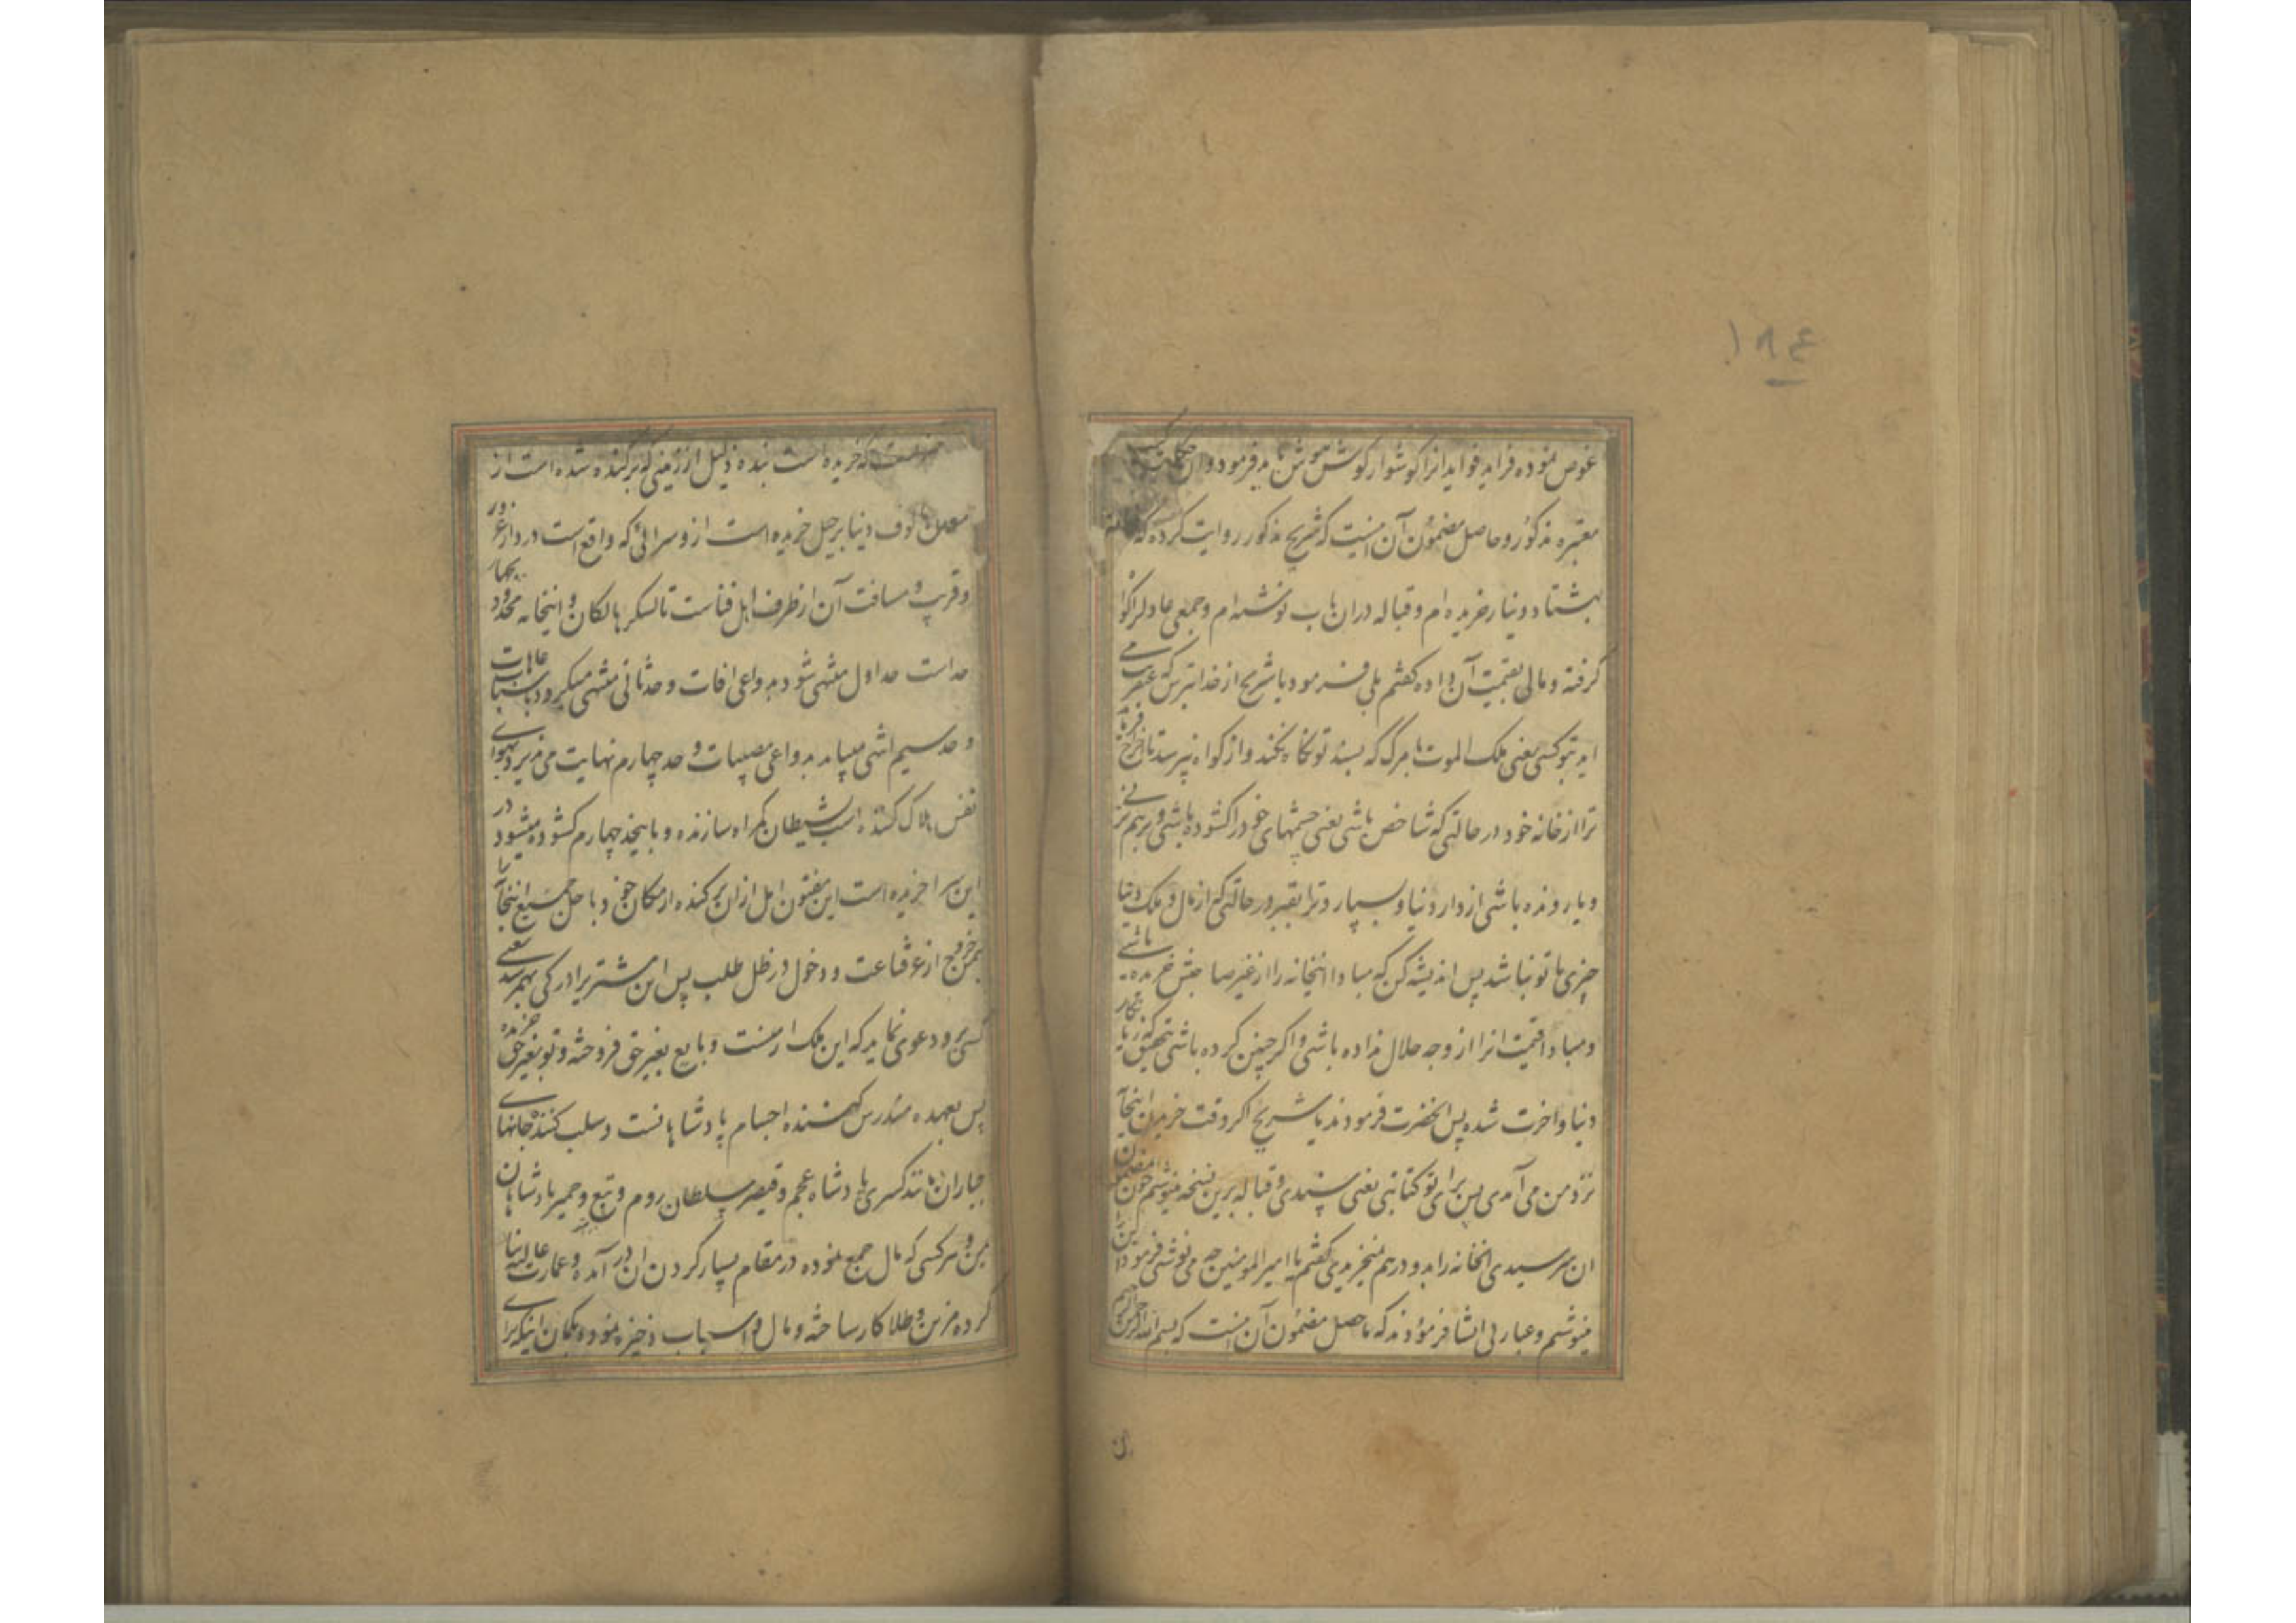 ١٨٤
غوص نموده فراید فواید انرا کوشوار کوش هوش می فرمود و ان حکایت
معتبره مذکور و حاصل مضمون آن اینست که شریح مذکور روایت کرده که
بهشتاد دینار خریده ام و قباله دران باب نوشته ام و جمعی عادل را کوا
کرفته و مالی بقیمت آن داده کفتم بلی فرمود یا شریح از خدا بترس که عنقر
اید بتو کسی یعنی ملک الموت یا مرک که بسند تو نکاه نکند و از کواه نپرسد تا
ترا از خانه خود در حالتی که شاخص باشی یعنی چشمهای خود را کشوده باشی و برهم نز
و یا رونده باشی از دار دنیا و بسپارد ترا بقبر در حالتی که از مال و ملک دنیا
چیزی با تو نباشد پس اندیشه کن که مبادا اینخانه را از غیر صاحبش خریده باشی
و مبادا قیمت انرا از وجه حلال نداده باشی و اکر چنین کرده باشی بتحقیق که زیا
دنیا و اخرت شده پس انحضرت فرمودند یا شریح اکر وقت خریدن اینخا
نزد من می آمدی پس برای تو کتابتی یعنی سندی و قباله برین نسخه مینوشتم چون
ان میرسیدی انخانه را بدو درهم نمیخریدی کفتم یا امیر المومنین چه می نوشتی فرمود
مینوشتم و عبارتی انشا فرمودند که حاصل مضمون آن اینست که بسم الله
که خریده است بنده ذلیل از زمینی که برکنده شده است از
دنیا برحیل خریده است ازو سرائی که واقع است در دار غرور
و قریب و مسافت آن از طرف اهل فناست تا لشکر هالکان و اینخانه محدود بچهار
حد است حد اول منتهی شود بدواعی افات و حد ثانی منتهی میکرود باسباب عاهات
و حد سیم انتها مییابد بدواعی مصیبات و حد چهارم نهایت می پذیرد بهوای
نفس هلاک کننده شیطان کمراه سازنده و باینحد چهارم کشوده میشود در
این سرا خریده است این مفتون امل از ان برکنده از مکان خود باجل جمیع اینخا
بثمن خروج از عز قناعت و دخول در ظل طلب پس این مشتری را درکی بهمرسد یعنی
کسی برو دعوی نماید که این ملک از منست و بایع بغیر حق فروخته و تو بغیر حق خریده
پس بعهده مندرس کننده اجسام پادشاهانست و سلب کننده جانهای
جباران مانند کسری پادشاه عجم و قیصر سلطان روم و تبع و حمیر پادشاهان
یمن و هر کسی که مال جمع نموده در مقام بسیار کردن ان در آمده و عمارت عالی بنا
کرده مزین و طلا کار ساخته و مال و اسباب ذخیره نموده بکمان اینکه برا